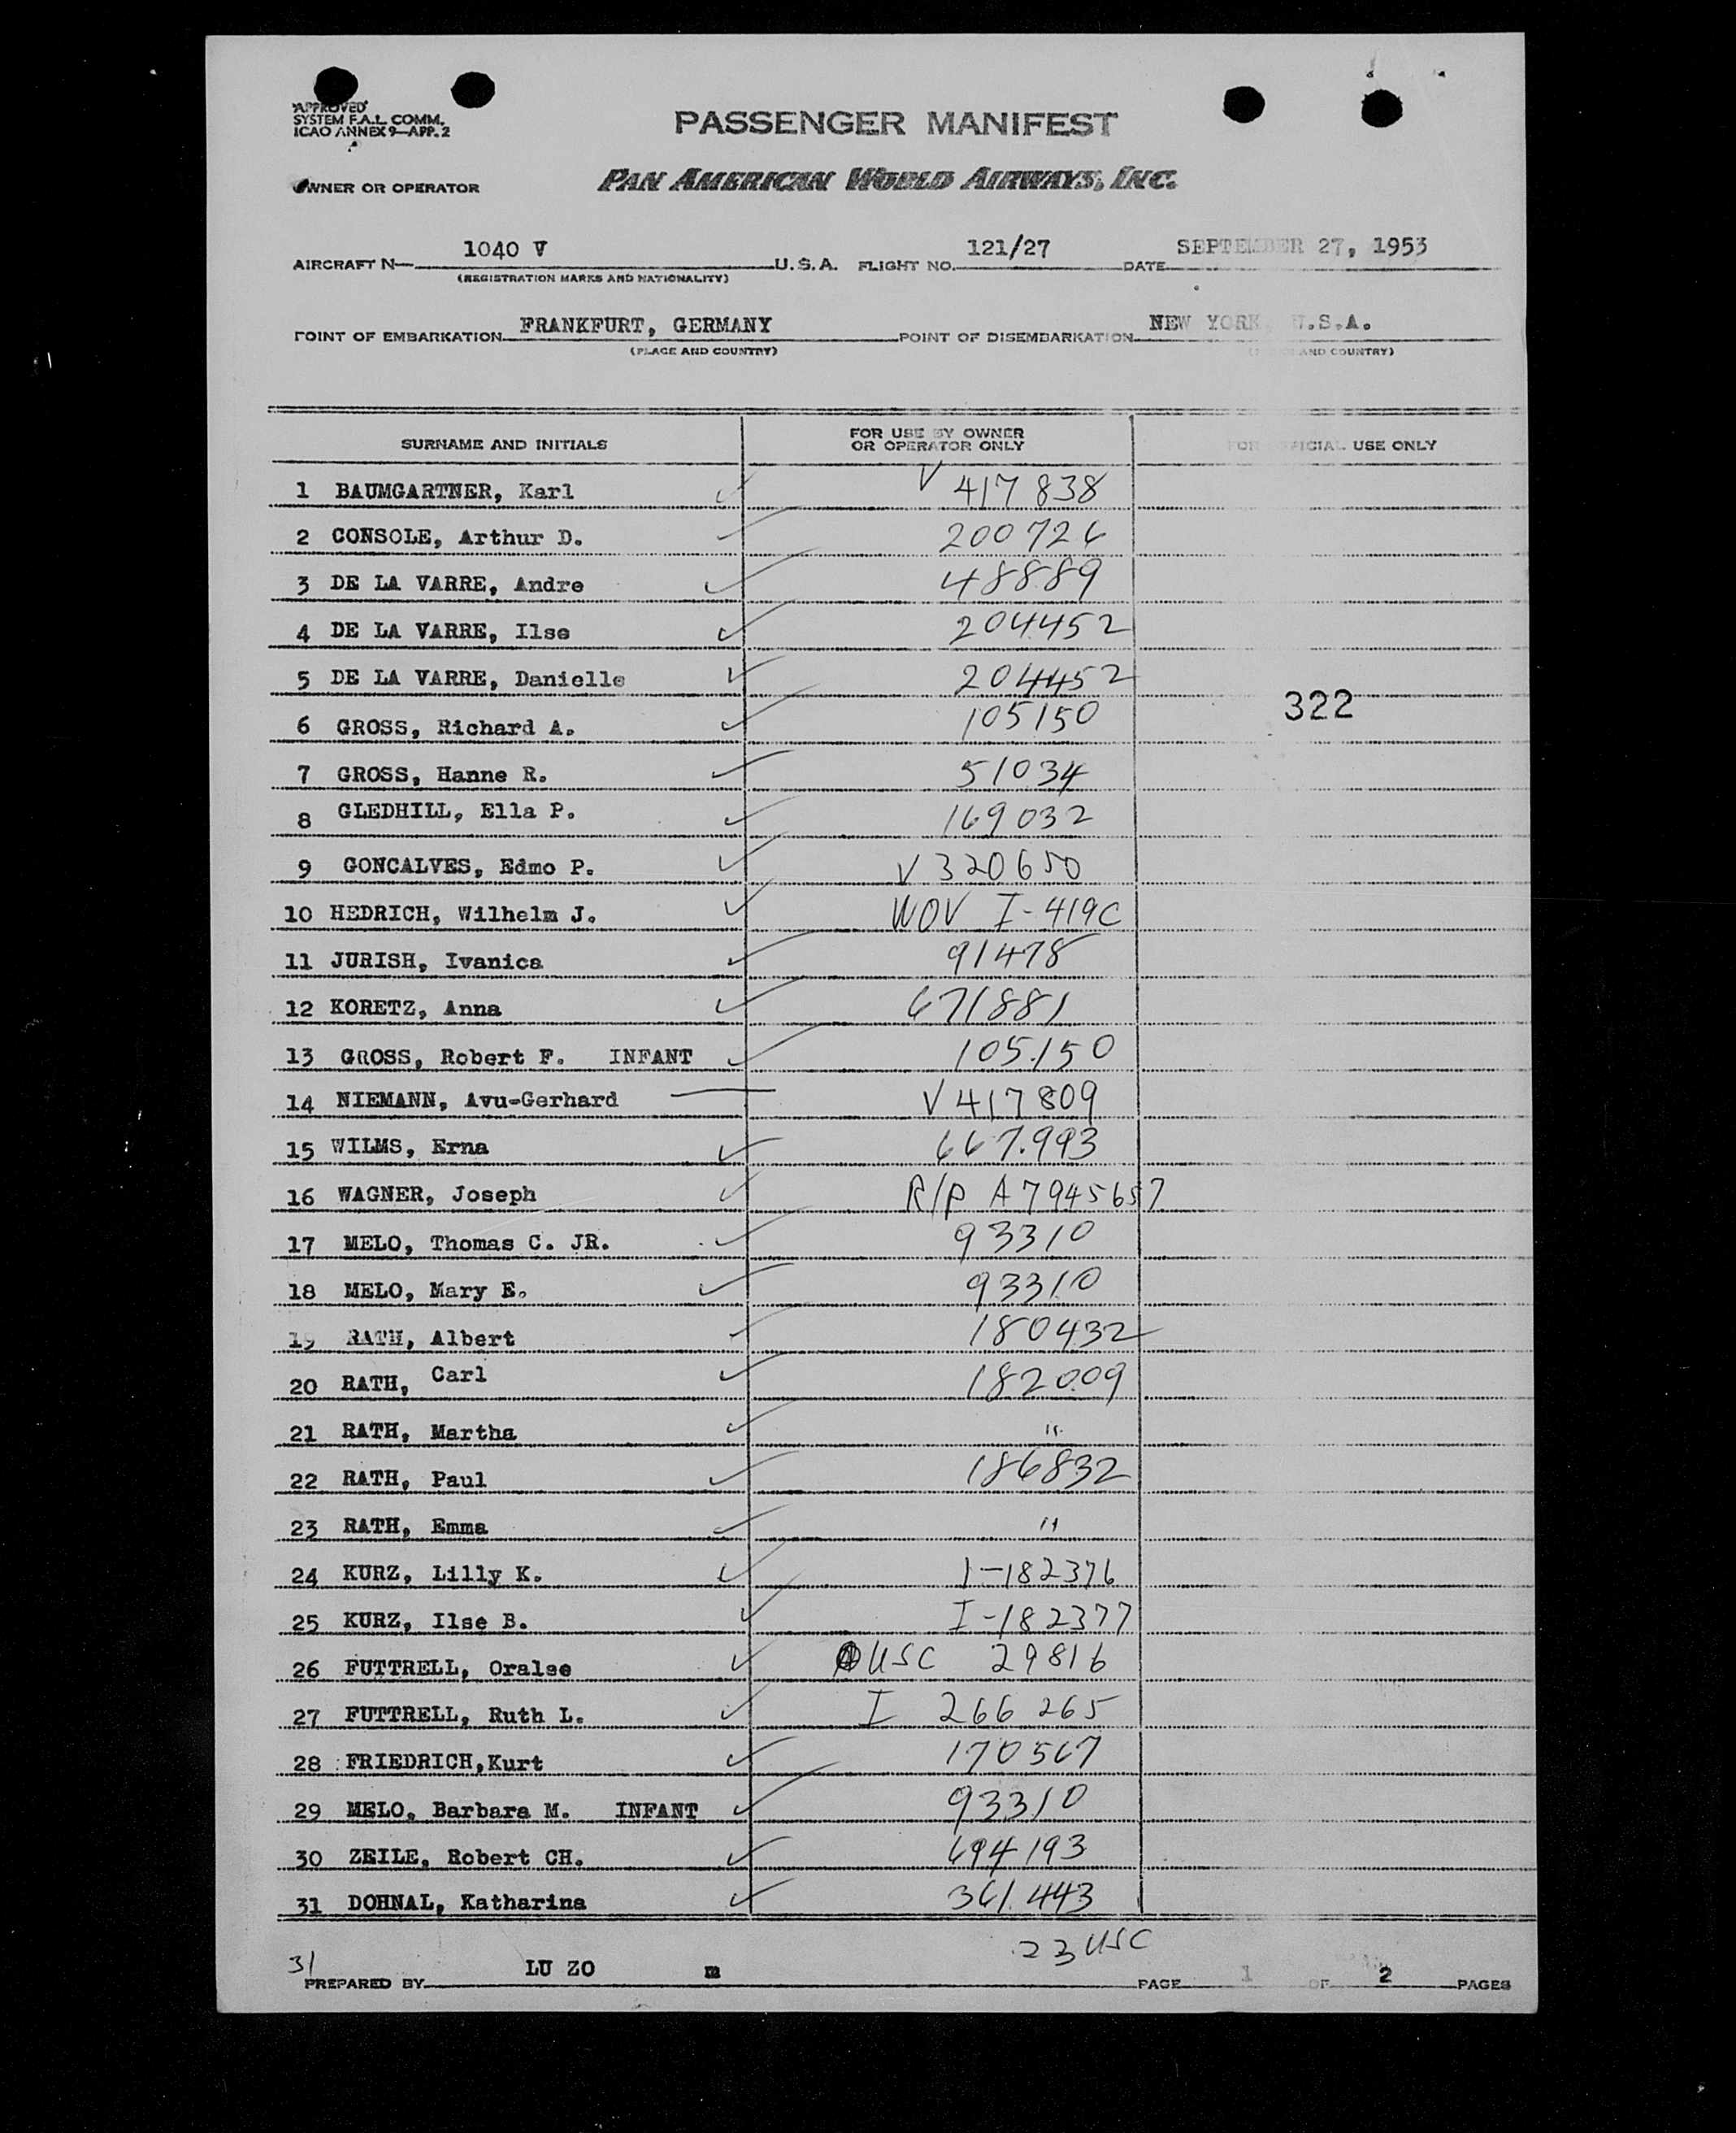 APPROVED
SYSTEM F.A.L. COMM.
ICAO ANNEX 9—APP. 2
PASSENGER MANIFEST
OWNER OR OPERATOR PAN AMERICAN WORLD AIRWAYS, INC.
AIRCRAFT N— 1040 V U.S.A. FLIGHT NO. 121/27 DATE SEPTEMBER 27, 1953
(REGISTRATION MARKS AND NATIONALITY)
POINT OF EMBARKATION FRANKFURT, GERMANY POINT OF DISEMBARKATION NEW YORK, U.S.A.
(PLACE AND COUNTRY) (PLACE AND COUNTRY)
SURNAME AND INITIALS FOR USE BY OWNER OR OPERATOR ONLY FOR OFFICIAL USE ONLY
1 BAUMGARTNER, Karl V 417 838
2 CONSOLE, Arthur D. 200726
3 DE LA VARRE, Andre 48889
4 DE LA VARRE, Ilse 204452
5 DE LA VARRE, Danielle 204452
322
6 GROSS, Richard A. 105150
7 GROSS, Hanne R. 51034
8 GLEDHILL, Ella P. 169032
9 GONCALVES, Edmo P. V 320650
10 HEDRICH, Wilhelm J. WOV I-419C
11 JURISH, Ivanica 91478
12 KORETZ, Anna 671881
13 GROSS, Robert F. INFANT 105150
14 NIEMANN, Avu-Gerhard V 417809
15 WILMS, Erna 667.993
16 WAGNER, Joseph R/P A7945657
17 MELO, Thomas C. JR. 93310
18 MELO, Mary E. 93310
19 RATH, Albert 180432
20 RATH, Carl 182009
21 RATH, Martha "
22 RATH, Paul 186832
23 RATH, Emma "
24 KURZ, Lilly K. I-182376
25 KURZ, Ilse B. I-182377
26 FUTTRELL, Oralee USC 29816
27 FUTTRELL, Ruth L. I 266265
28 FRIEDRICH,Kurt 170567
29 MELO, Barbara M. INFANT 93310
30 ZEILE, Robert CH. 694193
31 DOHNAL, Katharina 361.443
23 USC
31
PREPARED BY LU ZO m PAGE 1 OF 2 PAGES